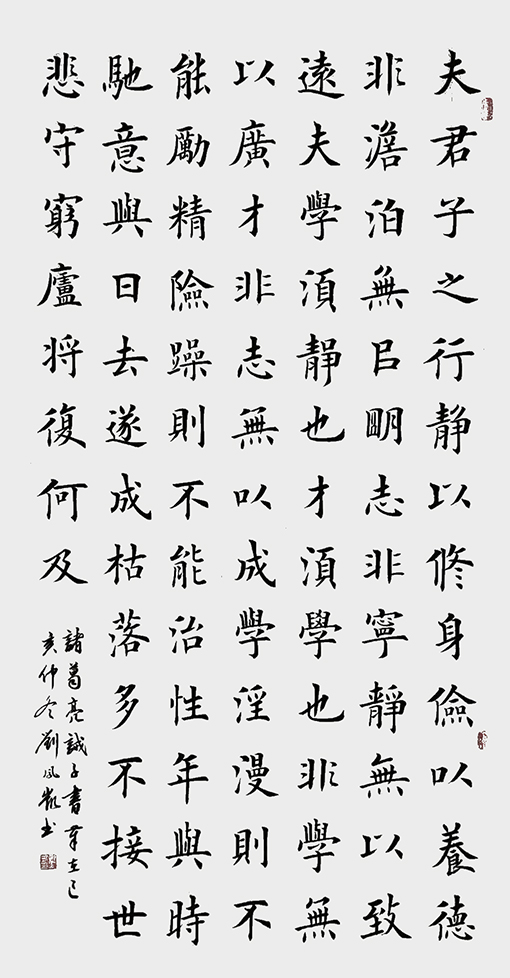 夫君子之行靜以修身儉以養德
非澹泊無㠯朙志非寧靜無以致
遠夫學須靜也才須學也非學無
以廣才非志無以成學淫漫則不
能勵精險躁則不能治性年與時
馳意與日去遂成枯落多不接世
悲守窮廬将復何及
諸葛亮誡子書 在己
亥仲冬劉凤书